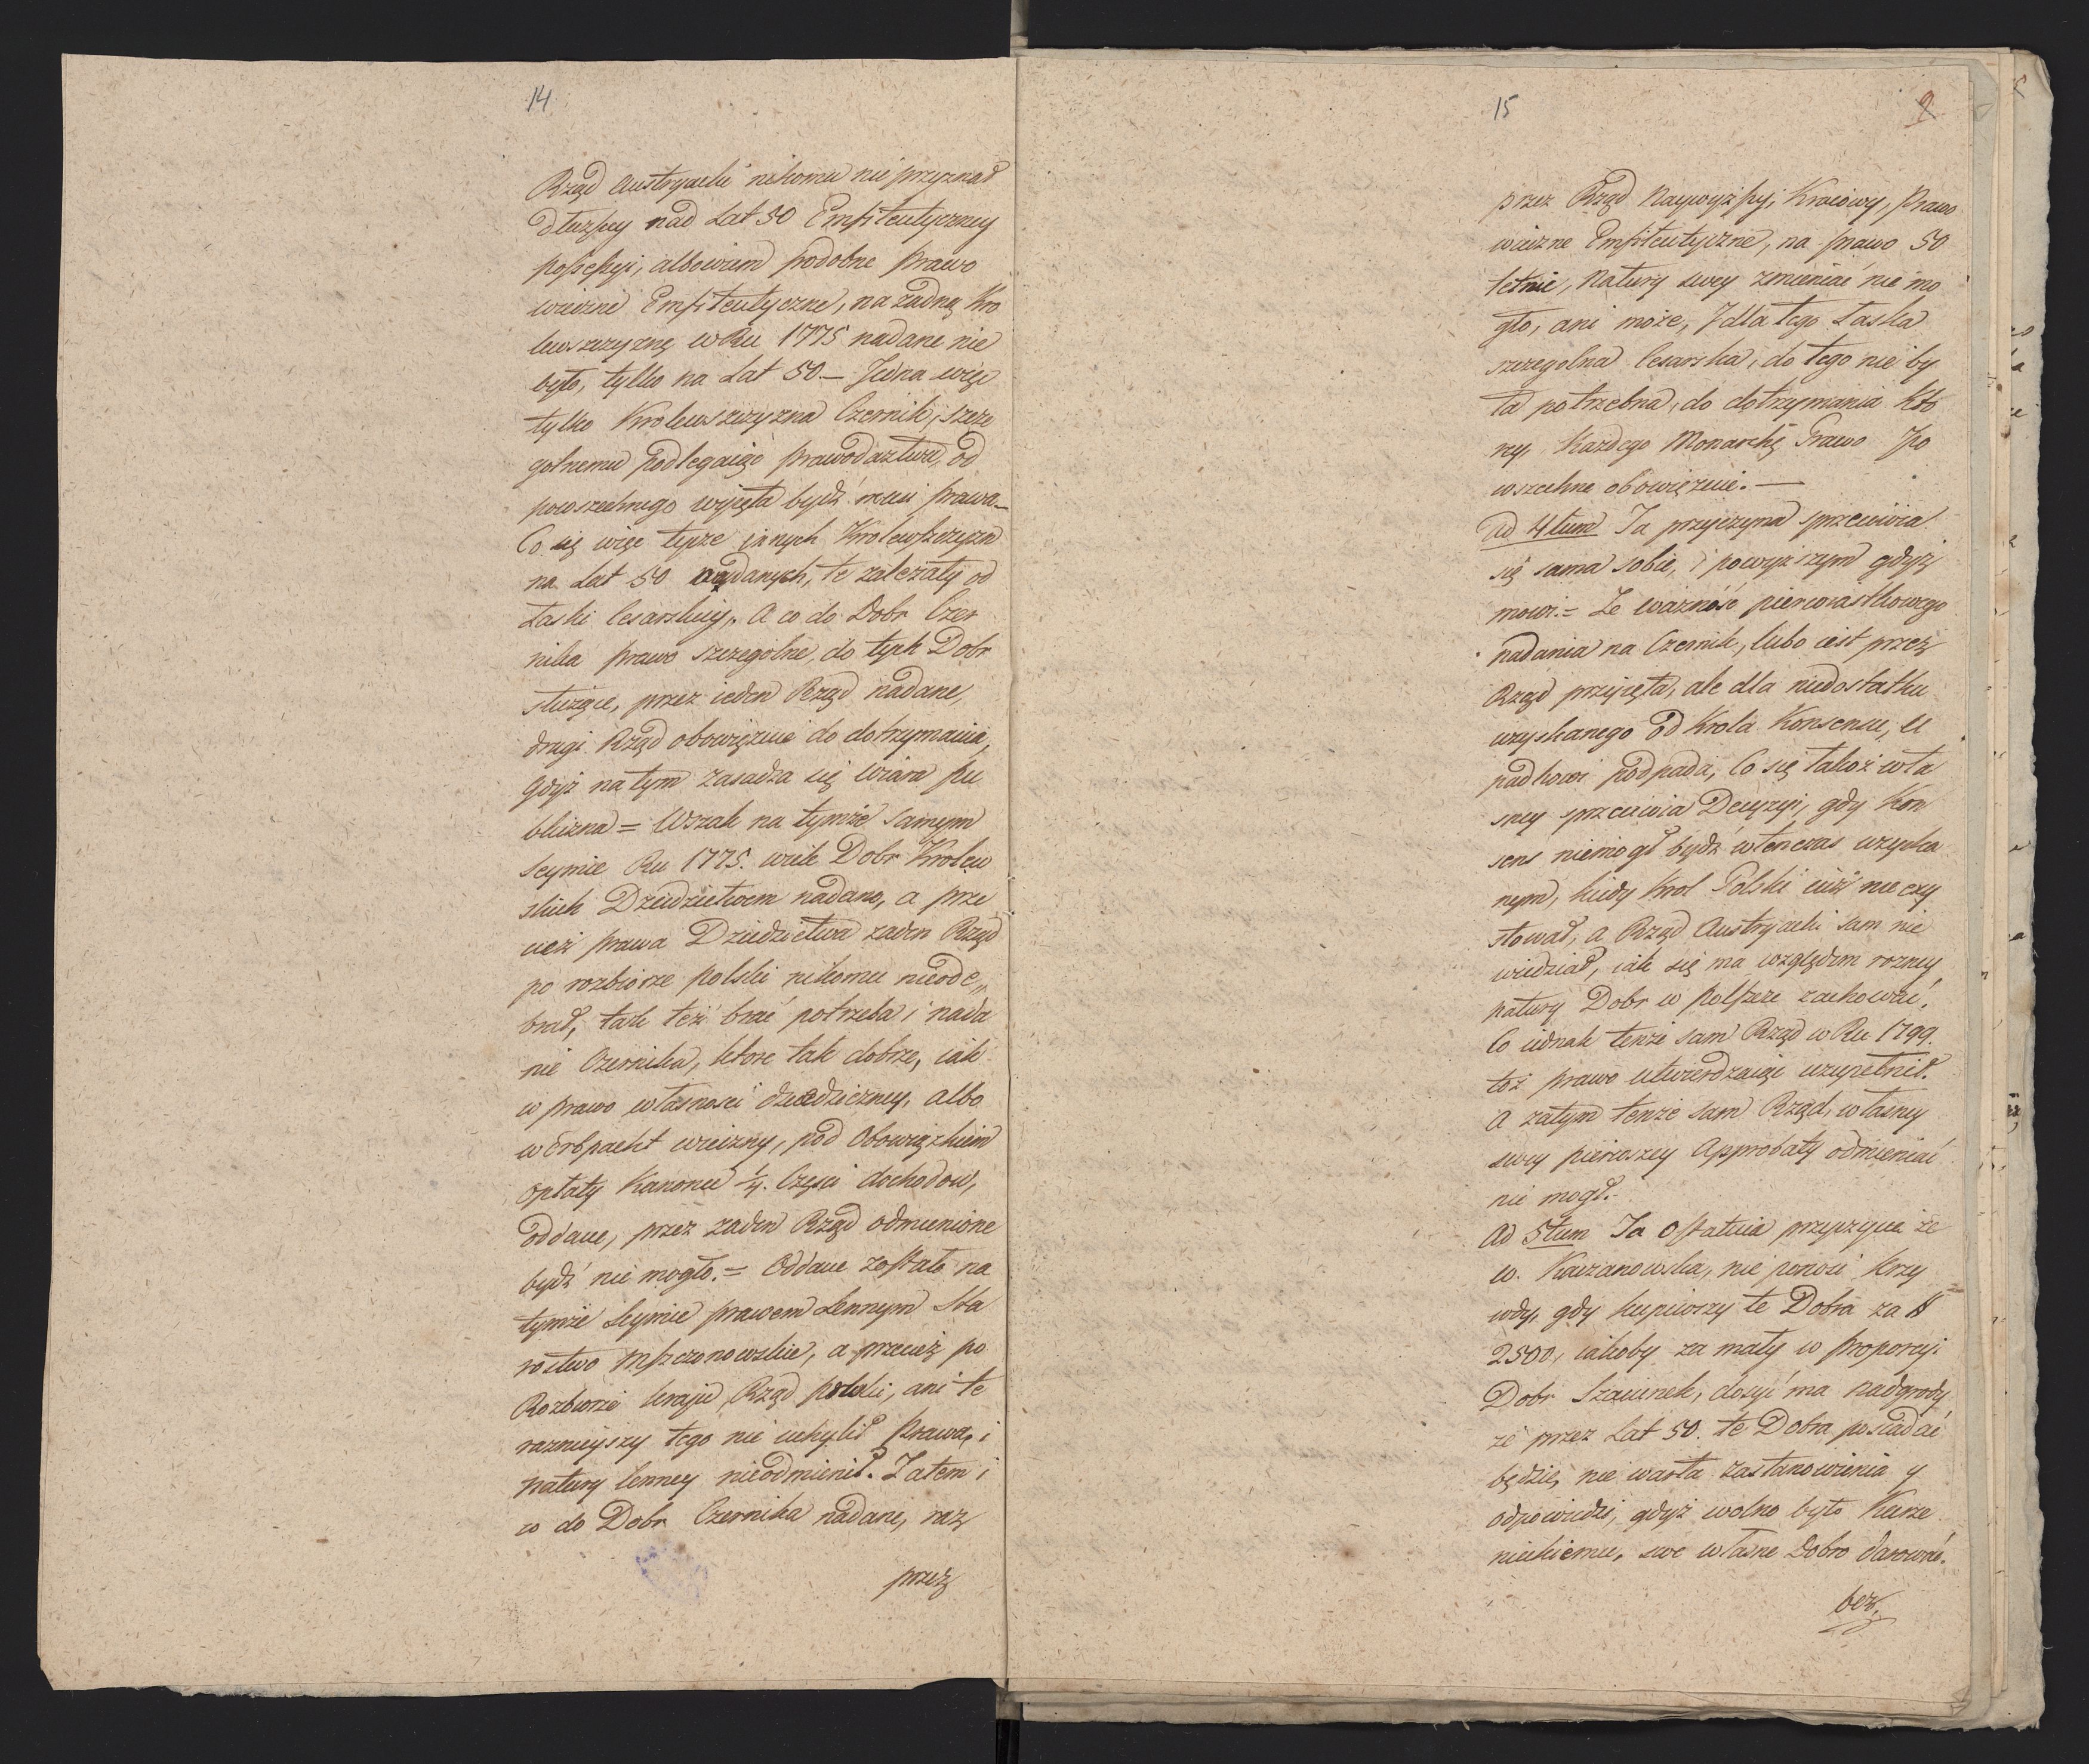 14
Rząd Austryacki nikomu nie przyznał
dłuzszey nad Lat 50 Emfiteutyczney
possessyi, albowiem podobne prawo
wieczne Emfiteutyczne, na zadną Kro
lewszczyznę w Ru 1775 nadane nie
było, tylko na Lat 50. — Jedna więc
tylko Krolewszczyzna Czernik, szcze
golnemu podlegaiąc prawodaztwu, od
powszechnego wyięta bydź musi prawa —
Co się więc tycze innych Krolewszczyzn
na Lat 50 nadanych, te zależały od
Łaski Cesarskiey. A co do Dobr Czer
nika prawo szczegolne, do tych Dobr
służące, przez ieden Rząd nadane,
drugi Rząd obowięzuie do dotrzymania,
gdyż na tym zasadza się wiara pu
bliczna = Wszak na tymże samym
Seymie Ru 1775. wiele Dobr Krolew
skich Dziedzictwem nadano, a prze
cież prawa Dziedzictwa zaden Rząd
po rozbiorze Polski nikomu nieode„
brał, tak też brać potrzeba i nada
nie Czernika, ktore tak dobrze, iak
w prawo własności dziedziczney, albo
w Erbpacht wieczny, pod Obowiązkiem
opłaty Kanonu ¼. Części dochodow,
oddane, przez zaden Rząd odmienione
bydź nie mogło. = Oddane zostało na
tymże Seymie prawem Lennym Sta
rostwo Mszczonowskie, a przecież po
Rozbiorze kraju, Rząd pruski, ani te
raznieyszy tego nie uchylił Prawa, i
natury lenney nieodmienił. Zatem i
co do Dobr Czernika nadane, raz
przez
15
9
przez Rząd Naywyższy, Kraiowy, Prawo
wieczne Emfiteutyczne, na prawo 50
letnie, Natury swey zmieniać nie mo
gło, ani może, I dla tego Łaska
szczegolna Cesarska, do tego nie by
ła potrzebna, do dotrzymania kto
ry, każdego Monarchę Prawo Po
wszechne obowięzuie. —
Ad 4tum Ta przyczyna sprzeciwia
się sama sobie, i powyższym gdyż
mowi = Ze ważność pierwiastkowego
nadania na Czernik, lubo iest przez
Rząd przyięta, ale dla niedostatku
uzyskanego od Krola Konsensu, u
padkowi podpada, Co się takoż wła
sney sprzeciwia Decyzyi, gdy Kon
sens niemogł bydź wtenczas uzyska
nym, kiedy Krol Polski iuż nie exy
stował, a Rząd Austryacki sam nie
wiedział, iak się ma względem rozney
natury Dobr w Polszcze zachować,
Co iednak tenże sam Rząd w Ru 1799.
toż prawo utwierdzaiąc uzupełnił.
A zatym tenże sam Rząd, własney
swey pierwszey Approbaty odmieniać
nie mogł.
Ad 5tum Ta Ostatnia przyczyna że
w. Kaczanowska, nie ponosi krzy
wdy, gdy kupiwszy te Dobra za #
2500, iakoby za mały w proporcyi
Dobr Szacunek, dosyć ma nadgrody
że przez Lat 50. te Dobra posiadać
będzie, nie warta zastanowienia y
odpowiedzi, gdyż wolno było Kurze
nieckiemu, swe własne Dobro darować.
bez.